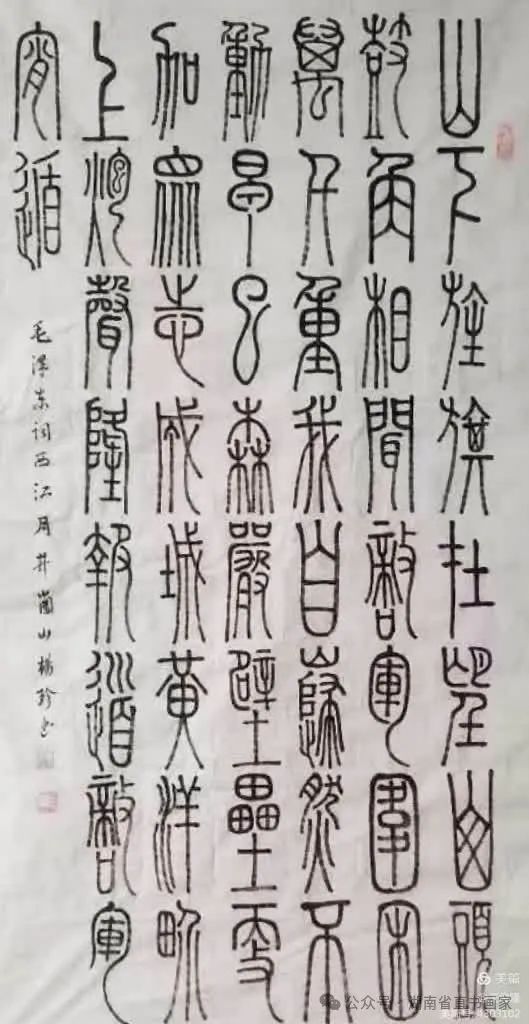 山下旌旗在望山頭
鼓角相聞敵軍圍困
萬千重我自巋然不
動早已森嚴壁壘更
加眾志成城黃洋界
上炮聲隆報道敵軍
宵遁
毛澤东词西江月井崗山楊珍书
美篇
公众号 · 湖南省直书画家